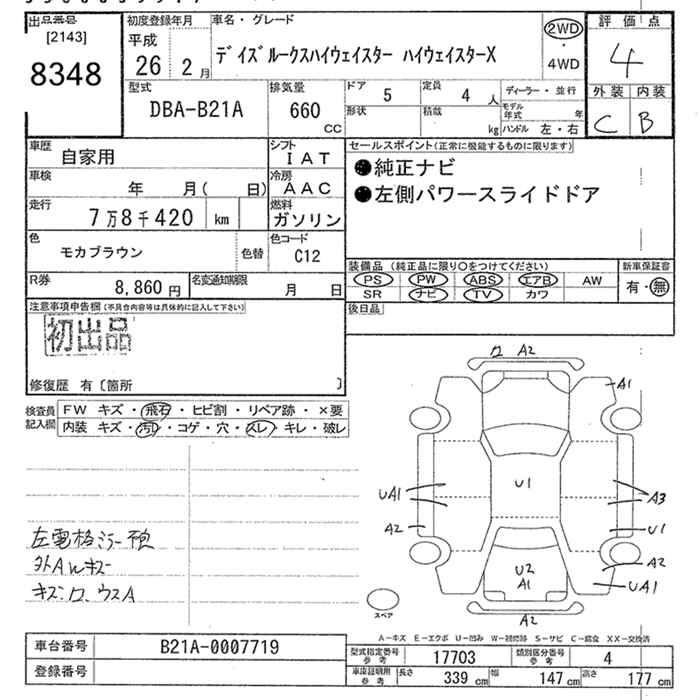 出品番号
[2143]
8348
初度登録年月
平成
26 2月
車名・グレード
デイズルークスハイウェイスター ハイウェイスターX
2WD
・
4WD
評価点
4
外装 内装
C B
型式
DBA-B21A
排気量
660
CC
ドア
5
定員
4人
形状
積載
kg
ディーラー・並行
モデル年式 年
ハンドル 左・右
車歴
自家用
シフト
IAT
車検
年 月( 日)
冷房
AAC
走行
7万8千420 km
燃料
ガソリン
色
モカブラウン
色替
色コード
C12
R券
8,860円
名変通知期限
月 日
セールスポイント(正常に機能するものに限ります)
●純正ナビ
●左側パワースライドドア
装備品 (純正品に限り○をつけてください)
PS PW ABS エアB AW
SR ナビ TV カワ
新車保証書
有・無
後日品
注意事項申告欄(不具合内容等は具体的に記入して下さい)
初出品
修復歴 有〔箇所 〕
検査員記入欄
FW キズ・飛石・ヒビ割・リペア跡・×要
内装 キズ・汚レ・コゲ・穴・スレ・キレ・破レ
左電格ミラー予
外AWキズ
キズ、ワ、ウスA
ワ A2
A1
UA1
U1
A3
A2
U1
A2
U2
A1
UA1
A2
スペア
A-キズ E-エクボ U-凹み W-補修跡 S-サビ C-腐食 XX-交換済
車台番号
B21A-0007719
登録番号
型式指定番号参考
17703
類別区分番号参考
4
車庫証明用参考
長さ 339 cm
幅 147 cm
高さ 177 cm